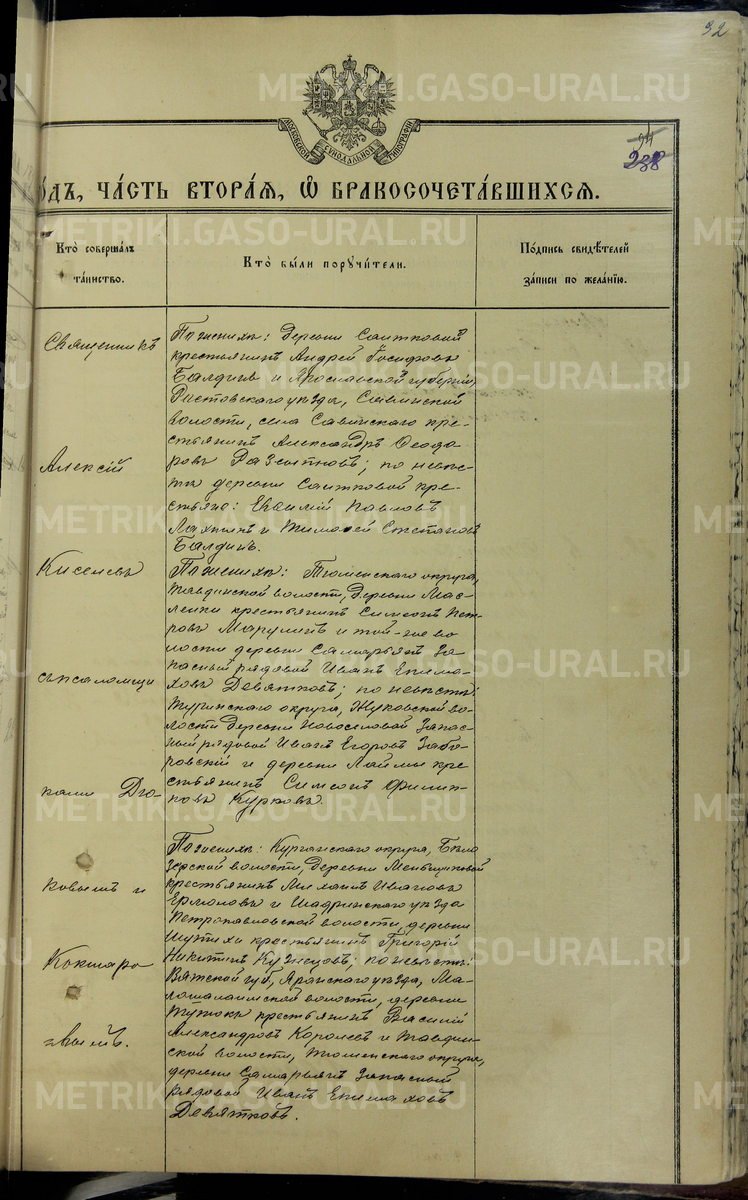 32
METRIKI.GASO-URAL.RU
МОСКОВСКОЙ СѴНОДАЛЬНОЙ ТИПОГРАФІИ
94
238
ОДЪ, ЧА́СТЬ ВТОРА́Я, Ѡ БРАКОСОЧЕТА́ВШИХСЯ.
Кто̀ соверша́лъ
та́инство.
Кто̀ бы́ли порꙋчи́тели.
По́дпись свидѣ́телей
за́писи по жела́нїю.
Священникъ
Алексій
Киселевъ
съ псаломщи
ками Дья-
ковымъ и
Кокшаро
вымъ.
По женихѣ: Деревни Саитковой
крестьянинъ Андрей Іосифовъ
Балдинъ и Ярославской губерніи,
Ростовскаго уѣзда, Савинской
волости, села Савинскаго кре-
стьянинъ Александръ Ѳеодо
ровъ; по невѣс-
тѣ деревни Саитковой кре-
стьяне: Евѳимій Павловъ
Лахтинъ и Тимоѳей Степановъ
Балдинъ.
По женихѣ: Тюменскаго округа,
Тавдинской волости, деревни Мас-
ленки крестьянинъ Симеонъ Пет
ровъ Марулинъ и той-же во
лости деревни Саитарыхъ За
пасный рядовой Иванъ Епима-
ховъ Девятковъ; по невѣстѣ:
Туринскаго округа, Жуковской во
лости Деревни Новоселовой Запас-
ный рядовой Иванъ Егоровъ Забо
ровскій и деревни Лаймы кре
стьянинъ Симеонъ Филип-
повъ Курковъ
По женихѣ: Курганскаго округа, Бѣло
зерской волости, Деревни Меньщиковой
крестьянинъ Михаилъ Ивановъ
Ермоловъ и Шадринскаго уѣзда
Петропавловской волости, деревни
Шутихи крестьянинъ Григорій
Никитинъ Кузнецовъ; по невѣстѣ:
Вятской губ, Яранскаго уѣзда, Ма-
волости, деревни
крестьянинъ Василій
Александровъ Королевъ и Тавдин-
ской волости, Тюменскаго округа,
деревни Запасный
рядовой Иванъ Епимаховъ
Девятковъ.